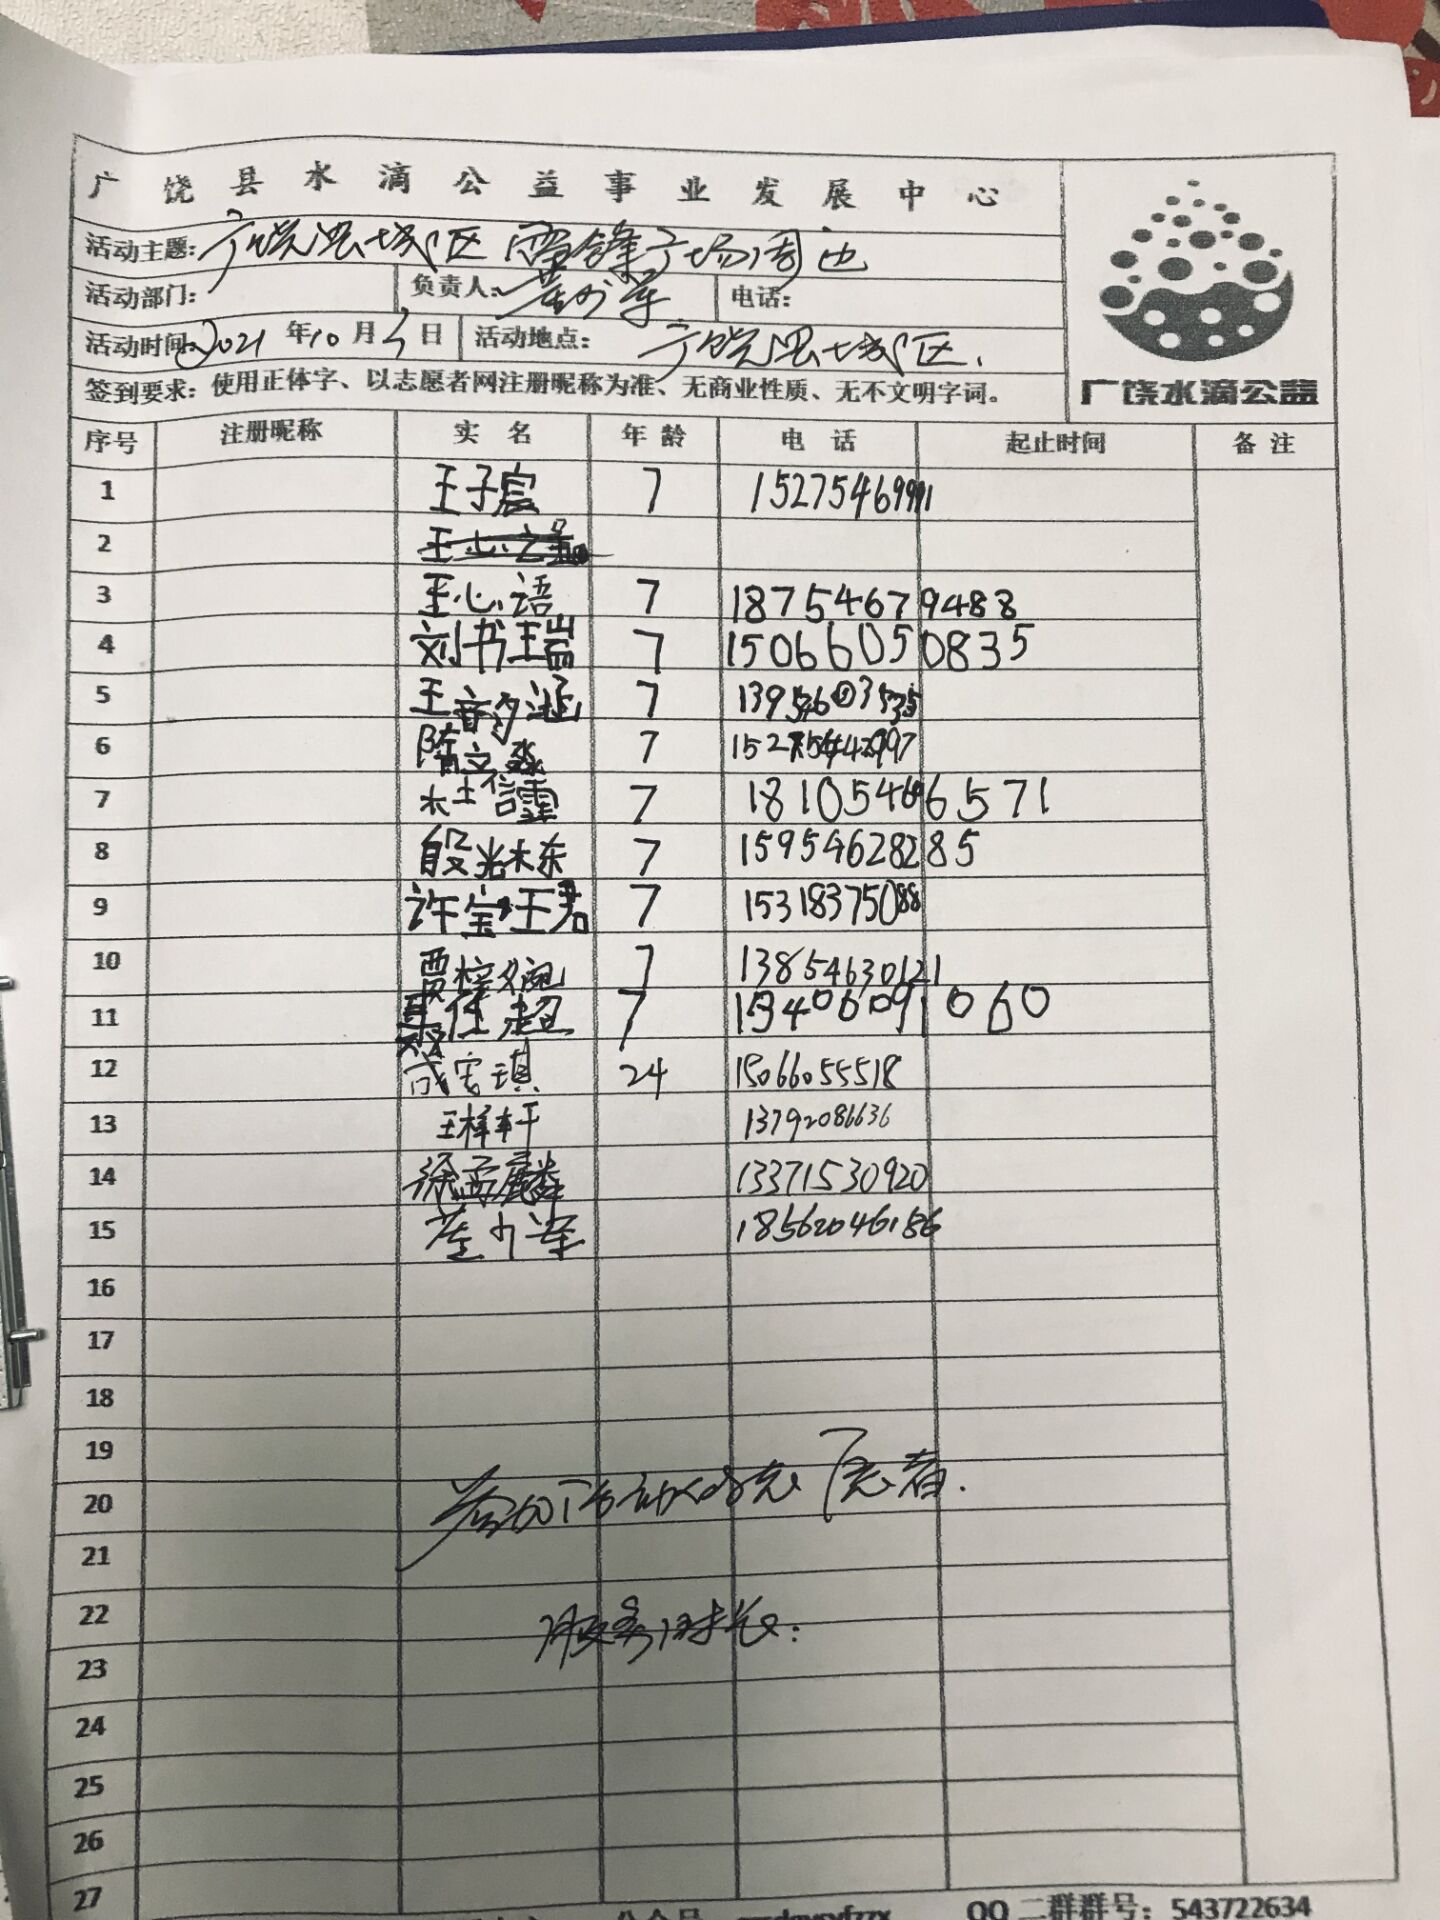 广饶县水滴公益事业发展中心
活动主题: 广饶县城区雷锋广场周边
活动部门: 负责人: 电话:
活动时间: 2021年10月3日 活动地点: 广饶县城区.
签到要求: 使用正体字、以志愿者网注册昵称为准、无商业性质、无不文明字词。
广饶水滴公益
序号 注册昵称 实名 年龄 电话 起止时间 备注
1 王子宸 7 15275469991
2
3 王心语 7 18754679488
4 刘书瑞 7 15066050835
5 王韵涵 7
6 隋文淼 7
7 杜信霏 7 18105466571
8 段光栋 7 15954628285
9 许宝珺 7 15318375088
10 贾梓婉 7 13854630121
11 聂任超 7
12 成宝琪 24 15066055518
13 王梓轩 13792086636
14 徐孟麟 13371530920
15 18562046186
16
17
18
19
20 参加活动的志愿者.
21
22 服务时长:
23
24
25
26
27
QQ 二群群号: 543722634